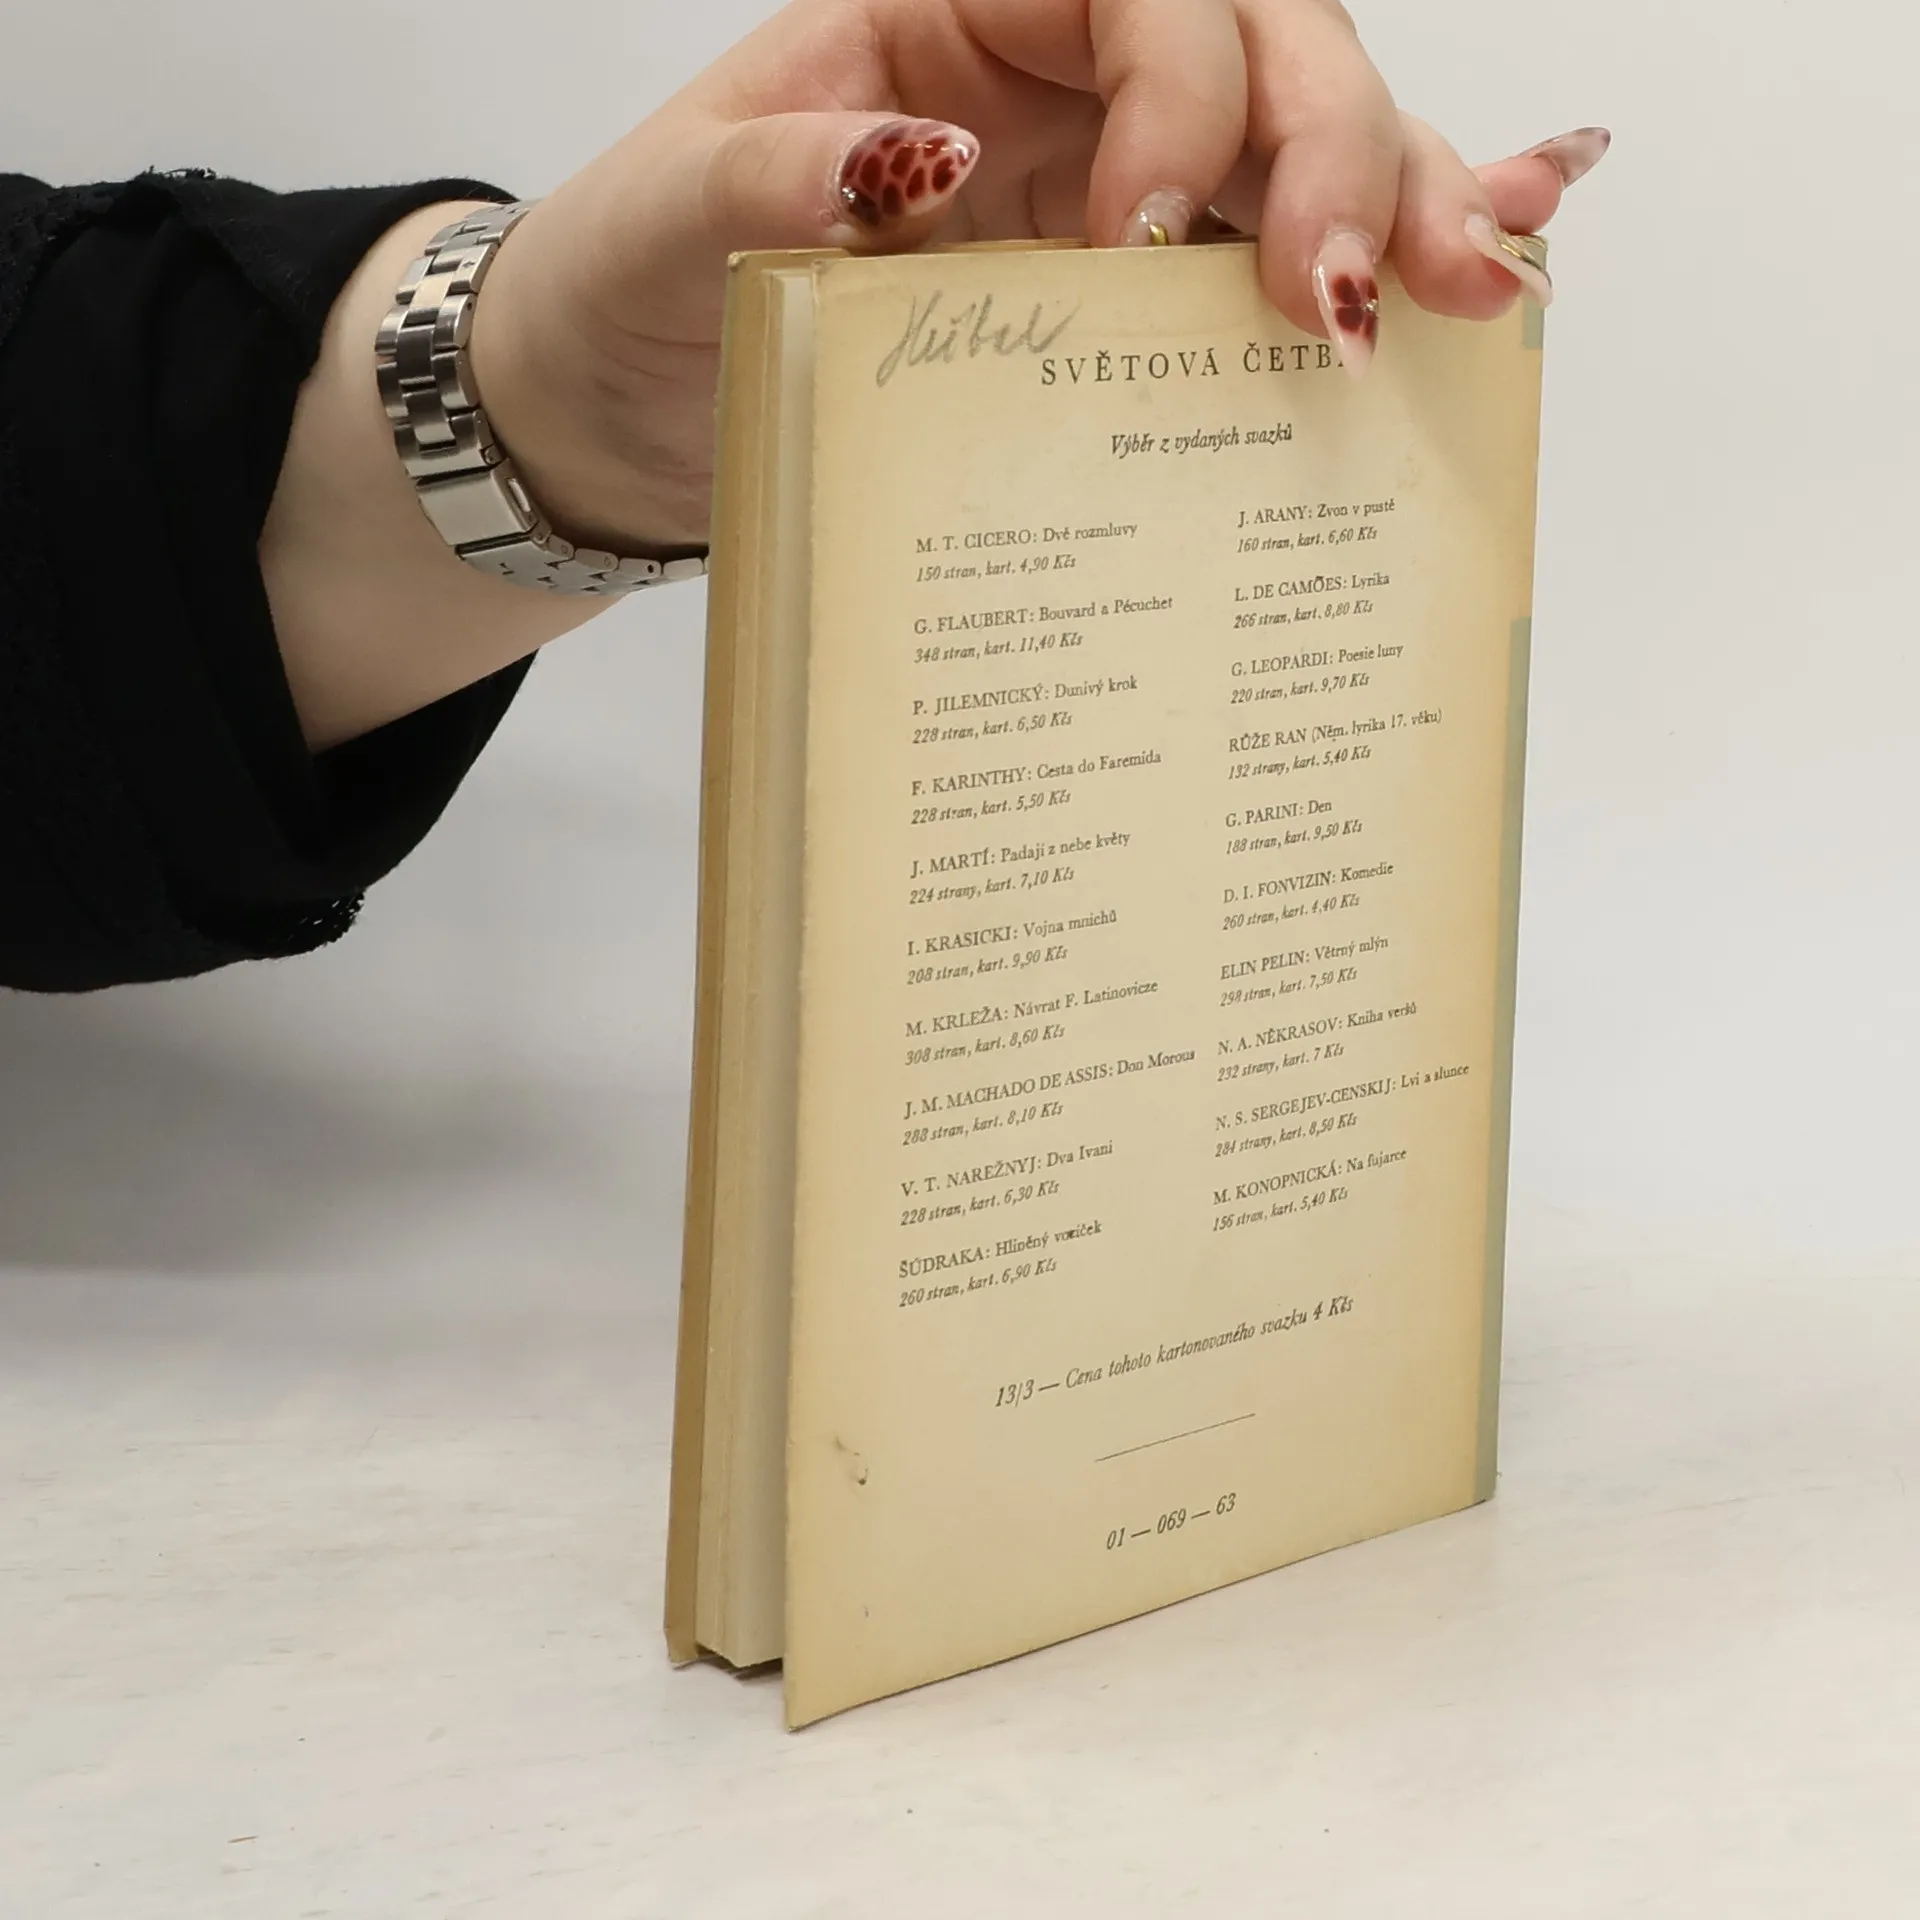 SVĚTOVÁ ČETB
Výběr z vydaných svazků
M. T. CICERO: Dvě rozmluvy
150 stran, kart. 4,90 Kčs
G. FLAUBERT: Bouvard a Pécuchet
348 stran, kart. 11,40 Kčs
P. JILEMNICKÝ: Dunivý krok
228 stran, kart. 6,50 Kčs
F. KARINTHY: Cesta do Faremida
228 stran, kart. 5,50 Kčs
J. MARTÍ: Padají z nebe květy
224 strany, kart. 7,10 Kčs
I. KRASICKI: Vojna mnichů
208 stran, kart. 9,90 Kčs
M. KRLEŽA: Návrat F. Latinovicze
308 stran, kart. 8,60 Kčs
J. M. MACHADO DE ASSIS: Don Morous
288 stran, kart. 8,10 Kčs
V. T. NAREŽNYJ: Dva Ivani
228 stran, kart. 6,30 Kčs
ŠÚDRAKA: Hliněný vozíček
260 stran, kart. 6,90 Kčs
J. ARANY: Zvon v pustě
160 stran, kart. 6,60 Kčs
L. DE CAMÕES: Lyrika
266 stran, kart. 8,80 Kčs
G. LEOPARDI: Poesie luny
220 stran, kart. 9,70 Kčs
RŮŽE RAN (Něm. lyrika 17. věku)
132 strany, kart. 5,40 Kčs
G. PARINI: Den
188 stran, kart. 9,50 Kčs
D. I. FONVIZIN: Komedie
260 stran, kart. 4,40 Kčs
ELIN PELIN: Větrný mlýn
298 stran, kart. 7,50 Kčs
N. A. NĚKRASOV: Kniha veršů
232 strany, kart. 7 Kčs
N. S. SERGEJEV-CENSKIJ: Lvi a slunce
284 strany, kart. 8,50 Kčs
M. KONOPNICKÁ: Na fujarce
156 stran, kart. 5,40 Kčs
13/3 — Cena tohoto kartonovaného svazku 4 Kčs
01 — 069 — 63